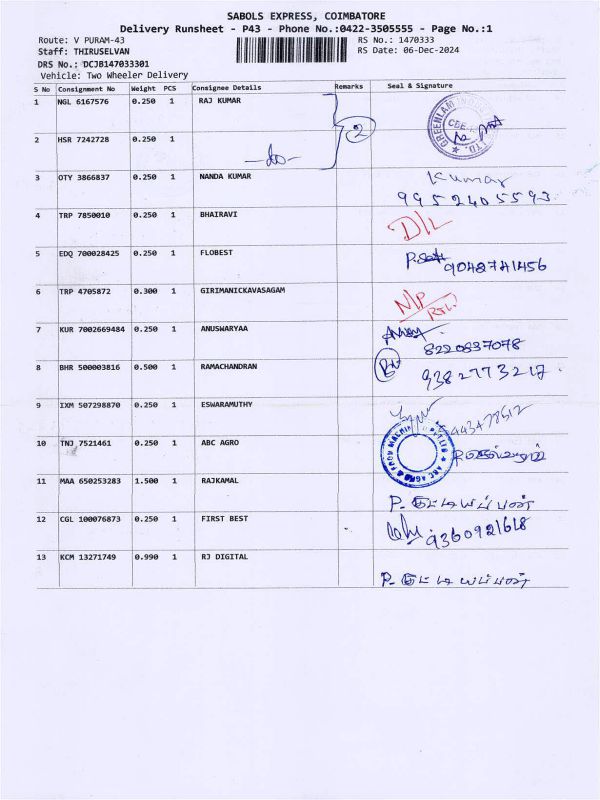 SABOLS EXPRESS, COIMBATORE
Delivery Runsheet - P43 - Phone No.:0422-3505555 - Page No.:1
Route: V PURAM-43 RS No.: 1470333
Staff: THIRUSELVAN RS Date: 06-Dec-2024
DRS No.: DCJB147033301
Vehicle: Two Wheeler Delivery
S No Consignment No Weight PCS Consignee Details Remarks Seal & Signature
1 NGL 6167576 0.250 1 RAJ KUMAR
2
2 HSR 7242728 0.250 1
-do-
3 OTY 3866837 0.250 1 NANDA KUMAR Kumar
9952405593
4 TRP 7850010 0.250 1 BHAIRAVI D/L
5 EDQ 700028425 0.250 1 FLOBEST 9048741456
6 TRP 4705872 0.300 1 GIRIMANICKAVASAGAM N/P
7 KUR 7002669484 0.250 1 ANUSWARYAA
8220837078
8 BHR 500003816 0.500 1 RAMACHANDRAN 9382773217
9 IXM 507298870 0.250 1 ESWARAMUTHY
10 TNJ 7521461 0.250 1 ABC AGRO
11 MAA 650253283 1.500 1 RAJKAMAL
P. குட்டியப்பன்
12 CGL 100076873 0.250 1 FIRST BEST 9360921618
13 KCM 13271749 0.990 1 RJ DIGITAL
P. குட்டியப்பன்